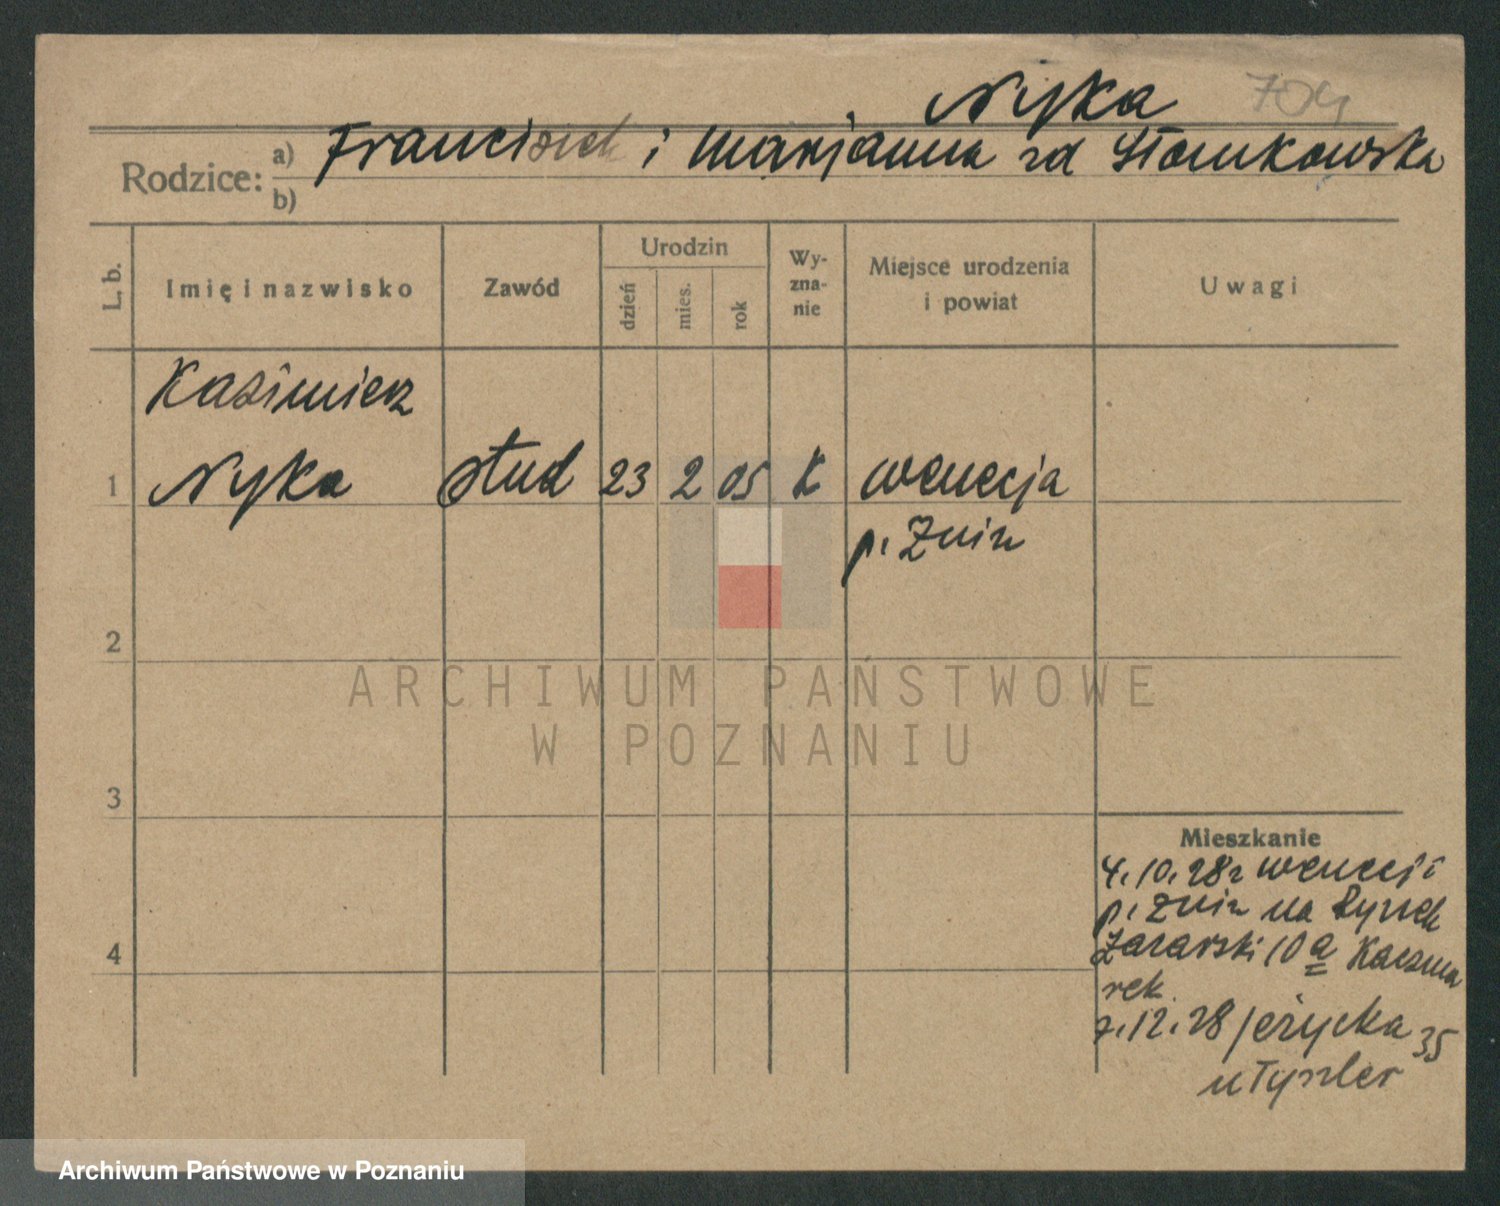 Nyka 704
Rodzice: a) Franciszek i Marjanna zd Słomkowska
b)
L. b. Imię i nazwisko Zawód Urodzin dzień mies. rok Wyznanie Miejsce urodzenia i powiat Uwagi
Kazimierz
1 Nyka stud 23 2 05 K Wenecja
p. Żnin
2
ARCHIWUM PAŃSTWOWE
W POZNANIU
3
Mieszkanie
4.10.28 z Wenecji
p. Żnin na Rynek
4
Łazarski 10 a Kaczma
rek
7.12.28 Jeżycka 35
u Tyszler
Archiwum Państwowe w Poznaniu